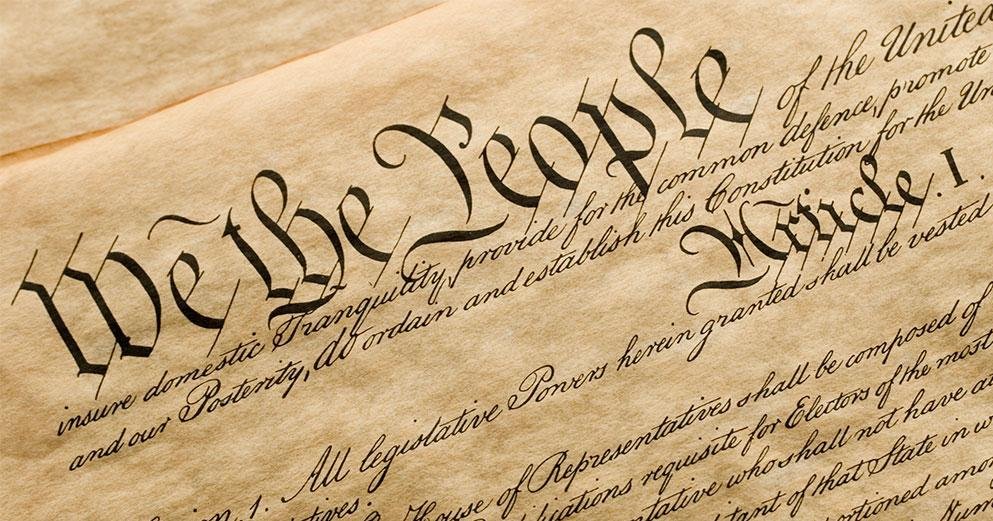 We the People of the United
insure domestic Tranquility, provide for the common defence, promote
and our Posterity, do ordain and establish this Constitution for the
Article. I.
1. All legislative Powers herein granted shall be vested
House of Representatives shall be composed of
requisite for Electors of the most
who shall not have
of that State in